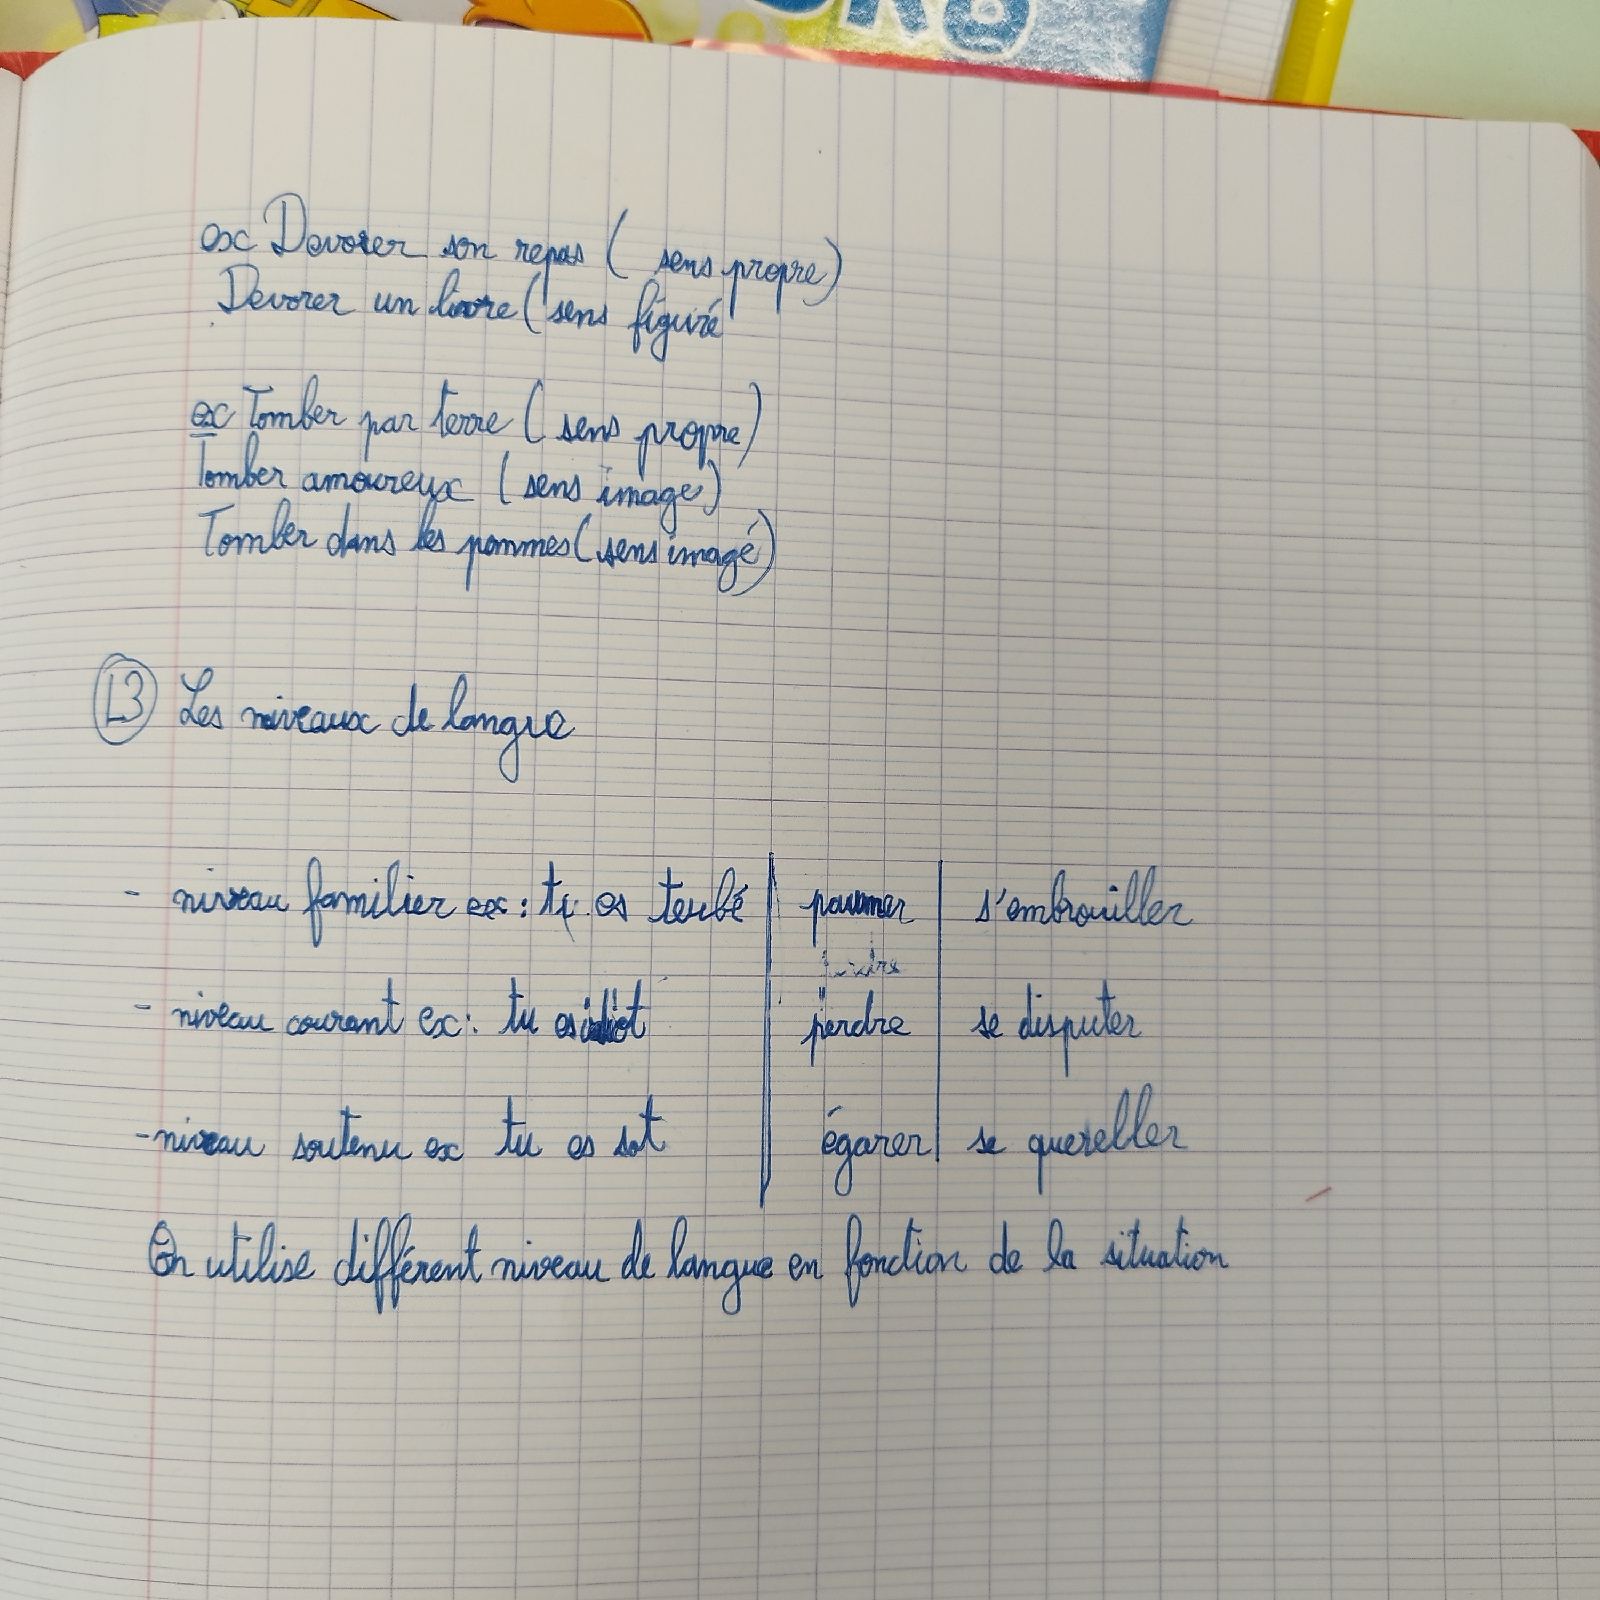 ex Devorer son repas ( sens propre)
Devorer un livre ( sens figuré
ex Tomber par terre ( sens propre)
Tomber amoureux ( sens image)
Tomber dans les pommes ( sens imagé)
L3 Les niveaux de langue
- niveau familier ex : tu es teubé | paumer | s'embrouiller
- niveau courant ex : tu es idiot | perdre | se disputer
- niveau soutenu ex tu es sot | égarer | se quereller
On utilise différent niveau de langue en fonction de la situation